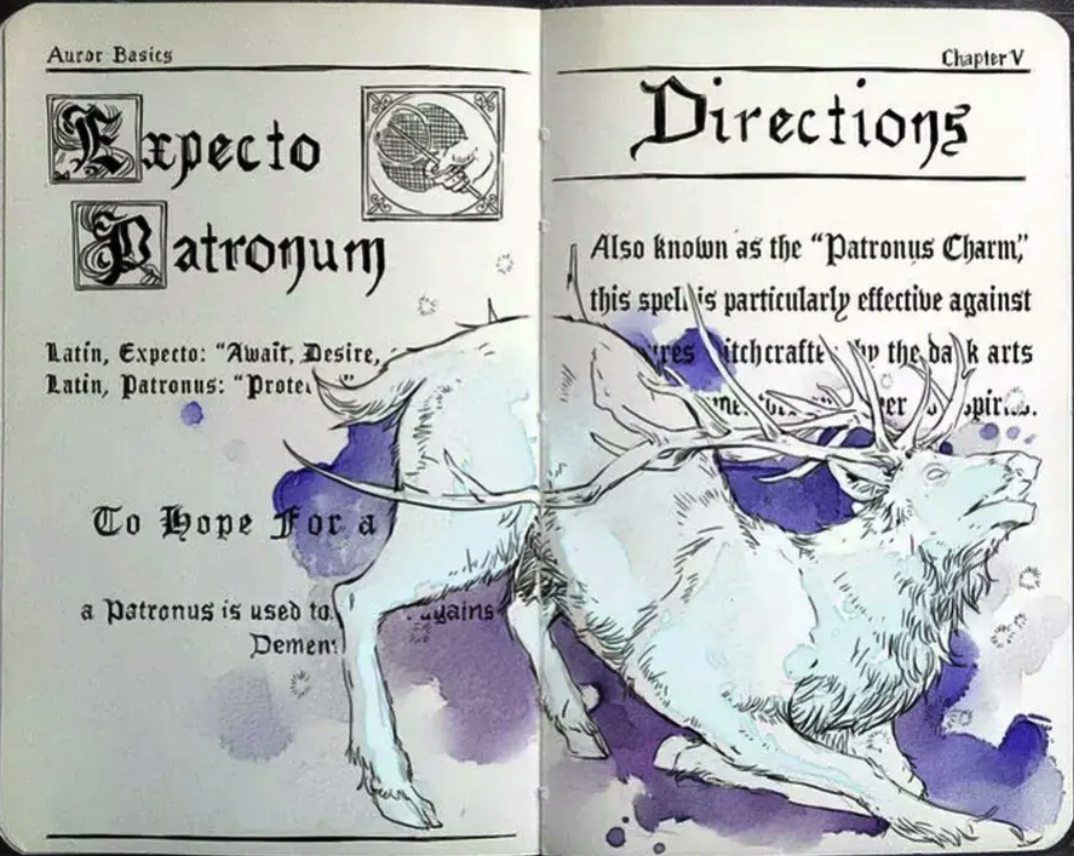 Auror Basics
Expecto
Patronum
Latin, Expecto: "Await, Desire,
Latin, Patronus:
To Hope For a
a Patronus is used to
Chapter V
Directions
Also known as the "Patronus Charm,"
this spell is particularly effective against
by the dark arts